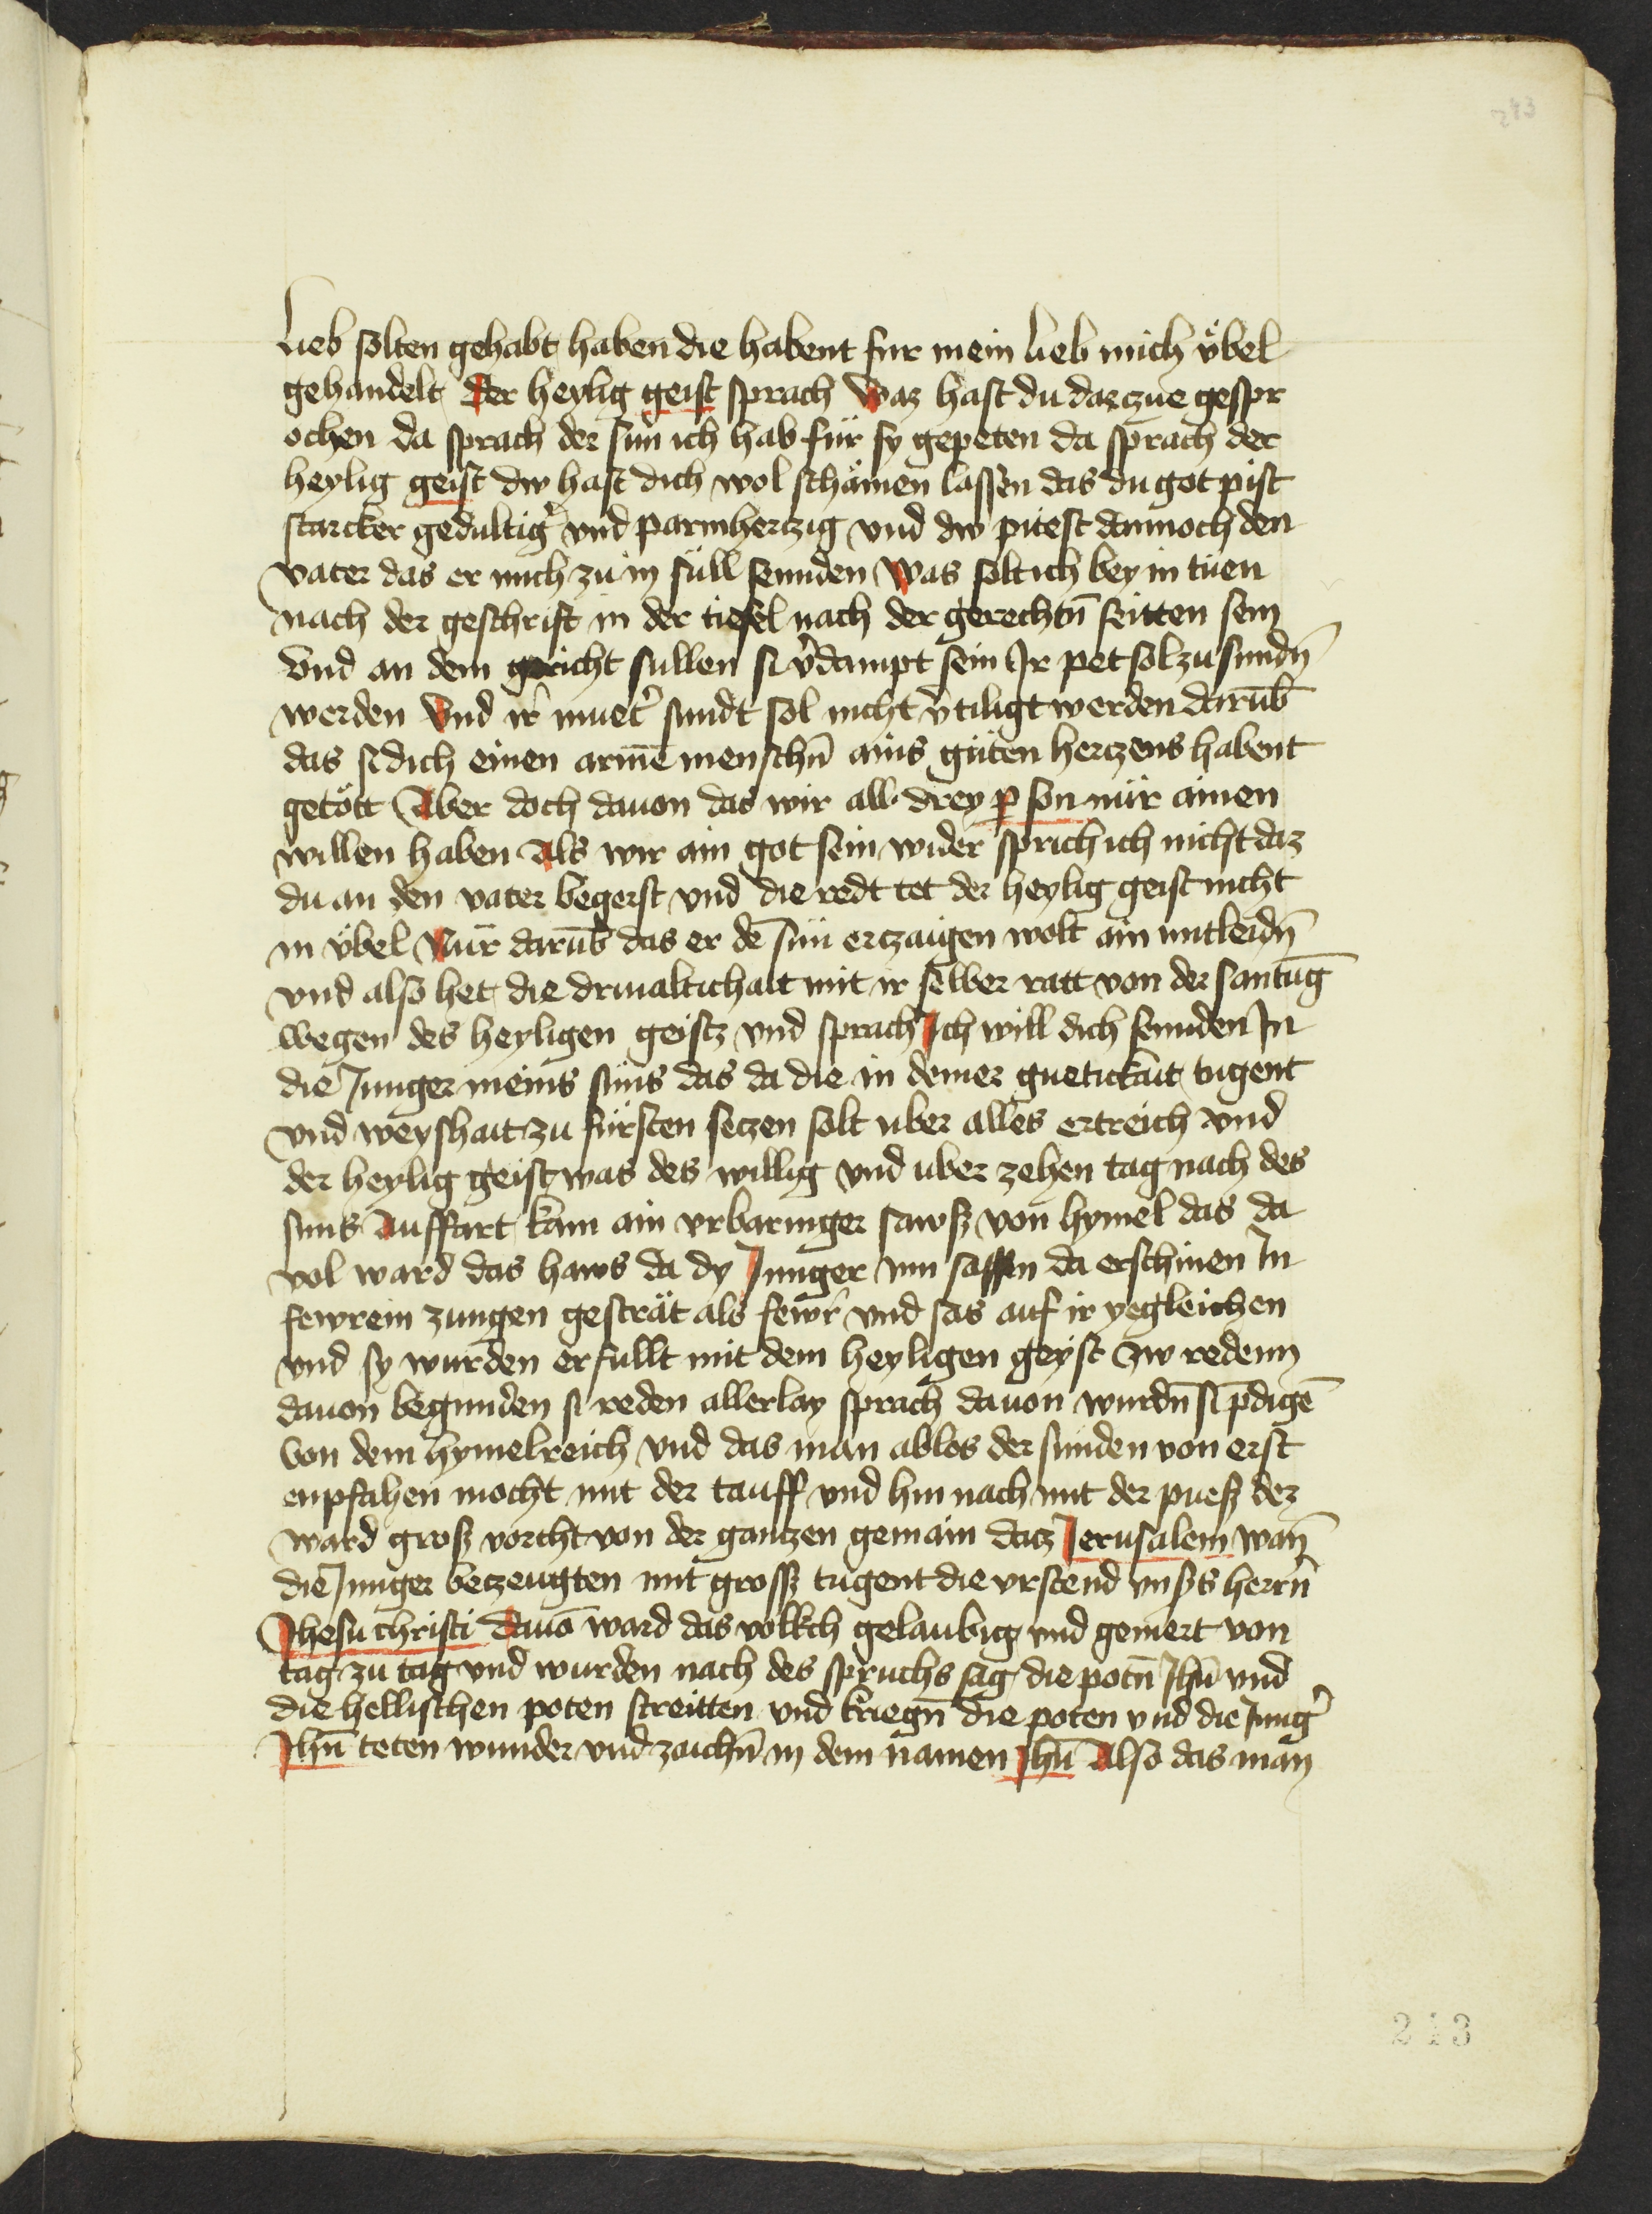 243
lieb solten gehabt haben die habent fur mein lieb mich v̈bel
gehandelt Der heylig geist sprach Waz hast du darczue gespr
ochen da sprach der sun ich hab für sy gepeten da sprach der
heylig geist dw hast dich wol schämen lassen das du got pist
starcker gedultig̉ vnd parmhertzig vnd dw pitest dannoch den
vater das er mich zu in süll sennden Was solt ich bey in tüen
nach der geschrift in der tiefel nach der gerechtn̄ seitten sein
Vnd an dem gericht sullen si v̉dampt sein Ir pet sol zu sundn̄
werden Vnd ir̉ muet̉ sundt sol nicht v̉tiligt werden darūb
das si dich einen armē menschn̄ ains güten hertzens habent
getött Aber doch dauon das wir all drey ꝑson nür ainen
willen haben Als wir ain got sein wider sprich ich nicht daz
du an den vater begerst vnd die redt tet der heylig geist nicht
in v̈bel Nür darūb das er dē sün ertzaigen wolt ain mitleidn̄
vnd also het die driualtichait mit ir selber ratt von der santūg
wegen des heyligen geistz vnd sprach Ich will dich sennden In
die Junger meins süns das da die in deiner guetickait tugent
vnd weyshait zu fürsten seczen solt vber alles ertreich vnd
der heylig geist was des willig vnd vber zehen tag nach des
suns Auffart kam ain vrbaringer sawsz von hymel das da
vol ward das haws da dy Junger inn sassen da erschinen In
fewrein zungen gesträt als fewr̉ vnd sas auf ir yegleichen
vnd sy wurden erfullt mit dem heyligen geyst zw redenn
dauon begunden si reden allerlay sprach dauon wurdn̄ si p̄digē
von dem hymelreich vnd das man ablos der sunden von erst
enpfahen mocht mit der tauff vnd hin nach mit der puesz dez
ward grosz vorcht von der gantzen gemain datz Jerusalem wan̄
die Junger beczeugten mit grossz tugent die vrstend vnsers herrn̄
Jhesu christi dauō ward das volkch gelaubig vnd gemert von
tag zu tag vnd wurden nach des spruchs sag die potn̄ Jhū vnd
die hellischen poten streitten vnd kriegn̄ die poten vnd die Jung̉
Jhū teten wunder vnd zaichn̄ in dem namen Jhū Also das man
243